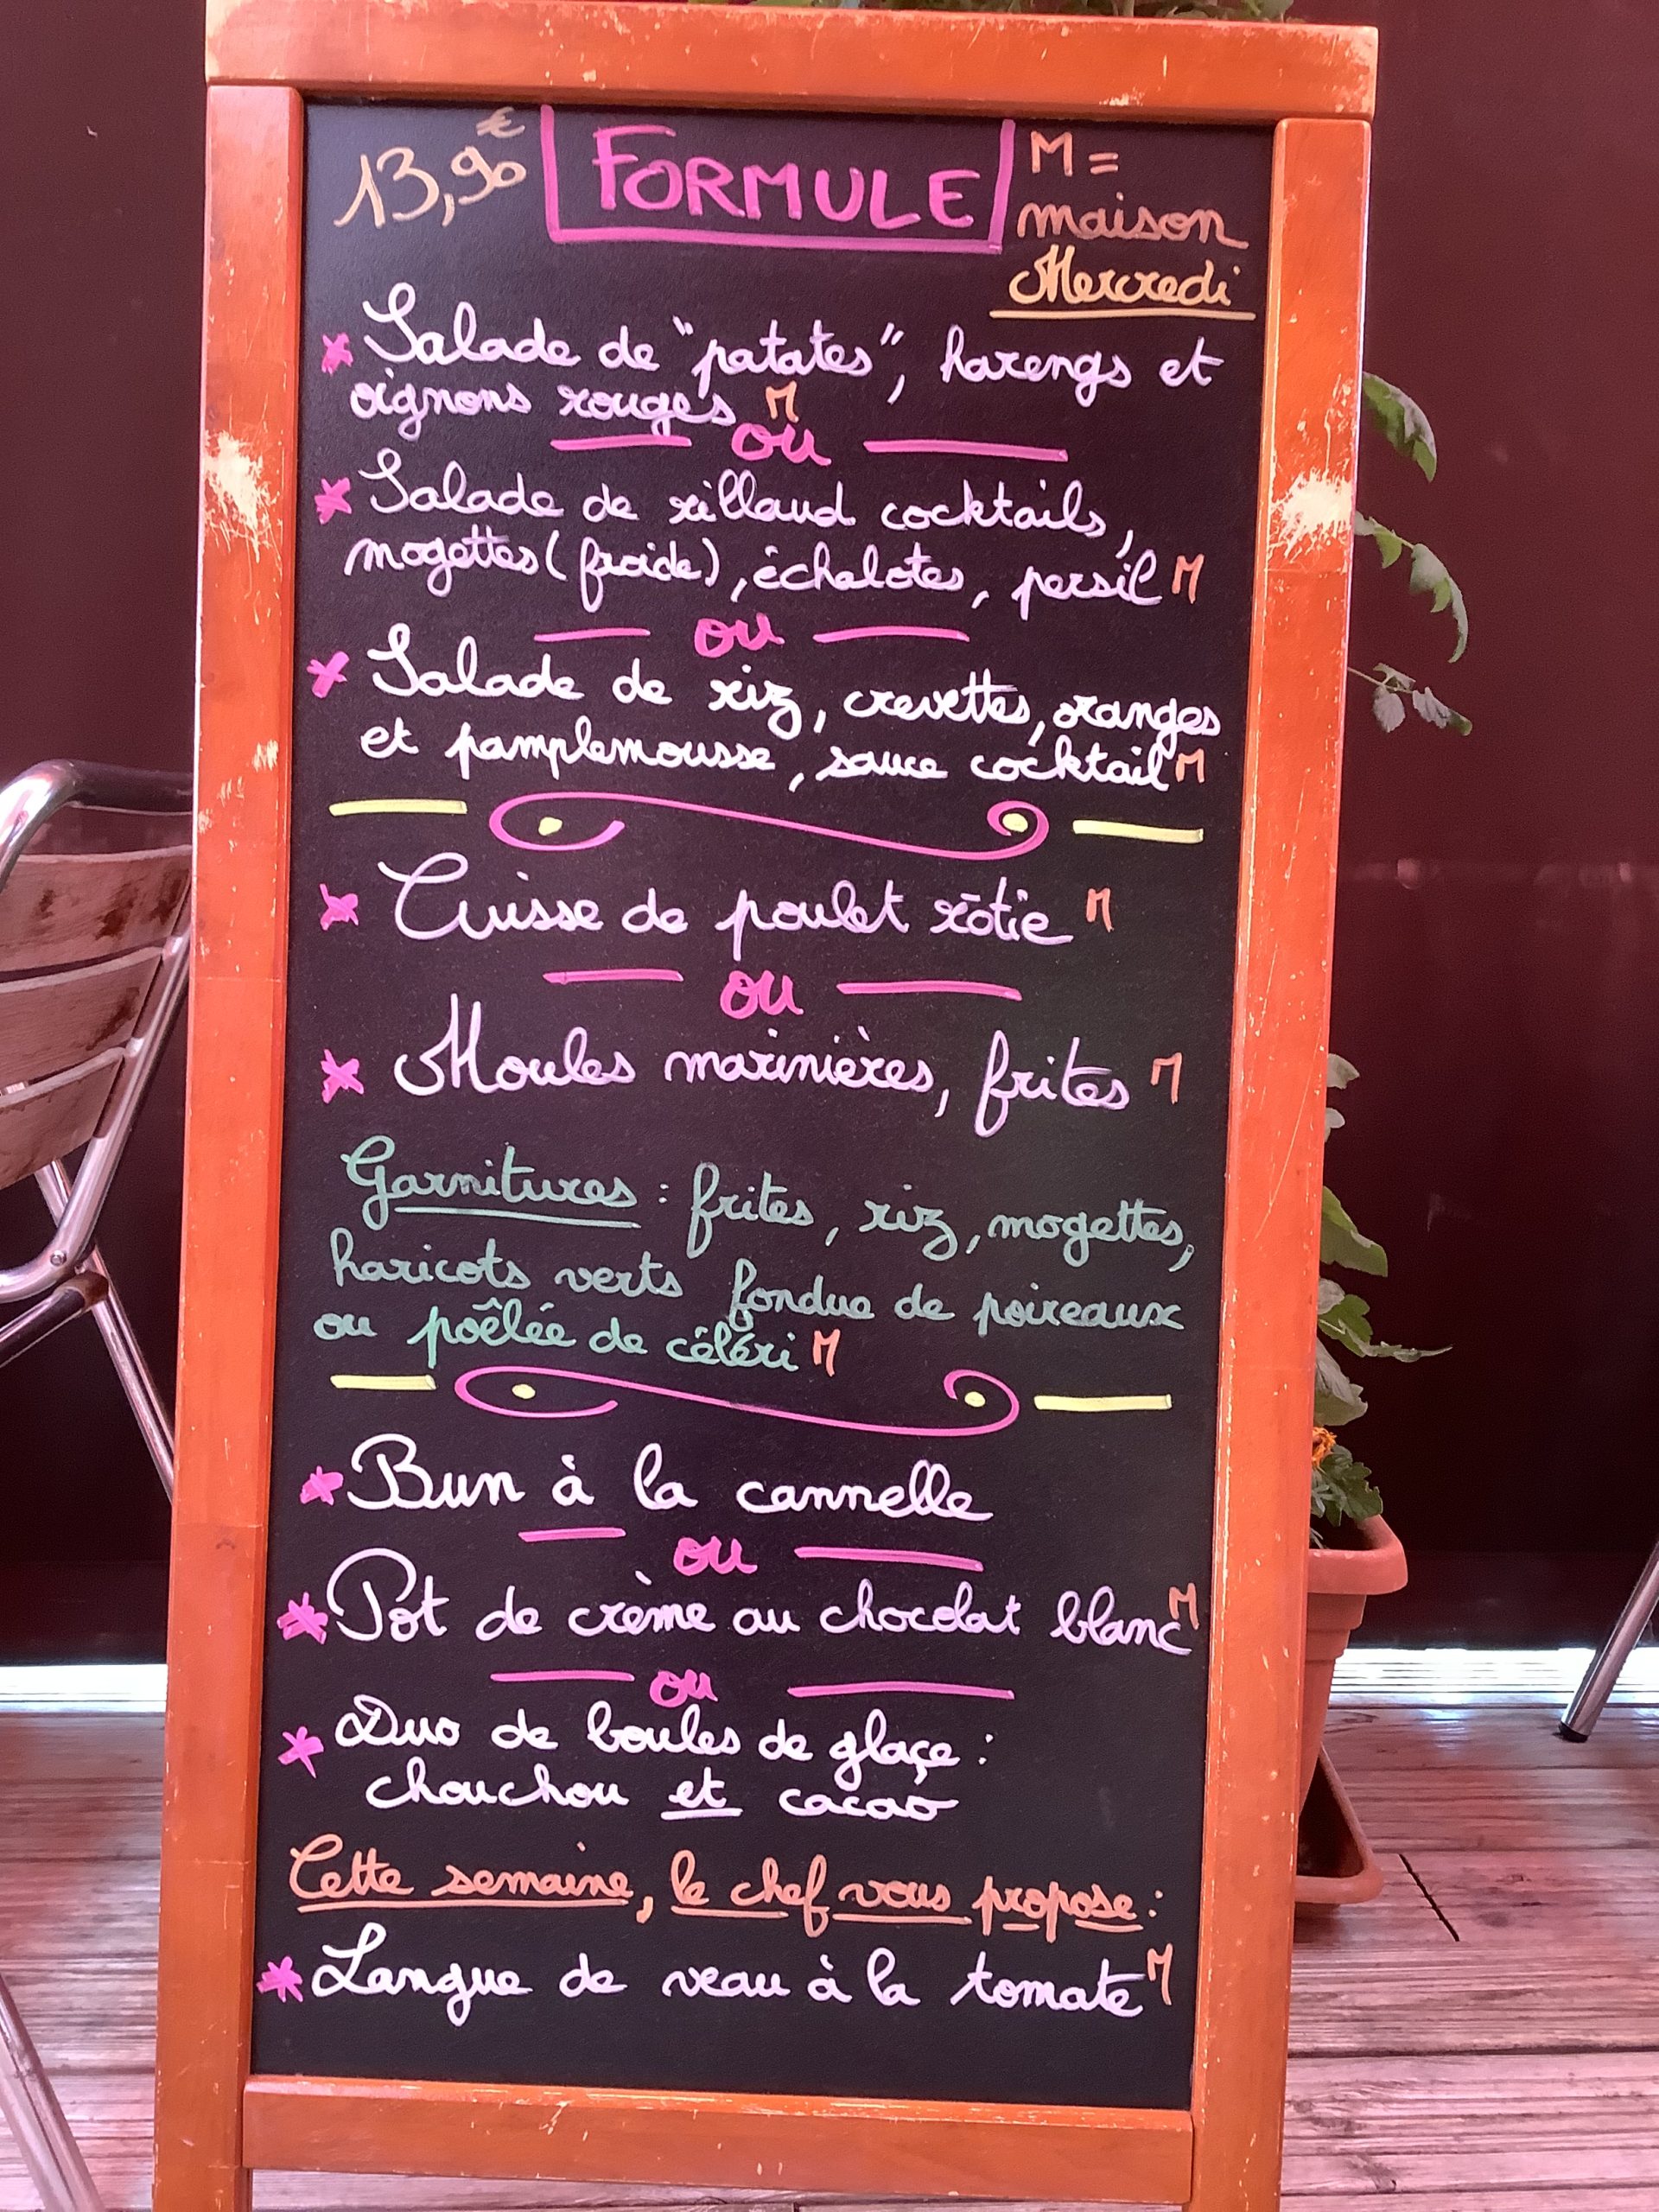 13,90€ FORMULE M =
maison
Mercredi
* Salade de "patates", harengs et
oignons rouges M
ou
* Salade de rillaud cocktails,
mogettes (froide), échalotes, persil M
ou
* Salade de riz, crevettes, oranges
et pamplemousse, sauce cocktail M
* Cuisse de poulet rôtie M
ou
* Moules marinières, frites M
Garnitures : frites, riz, mogettes,
haricots verts fondue de poireaux
ou poêlée de céléri M
* Bun à la cannelle
ou
* Pot de crème au chocolat blanc M
ou
* Duo de boules de glaçe :
chouchou et cacao
Cette semaine, le chef vous propose :
* Langue de veau à la tomate M